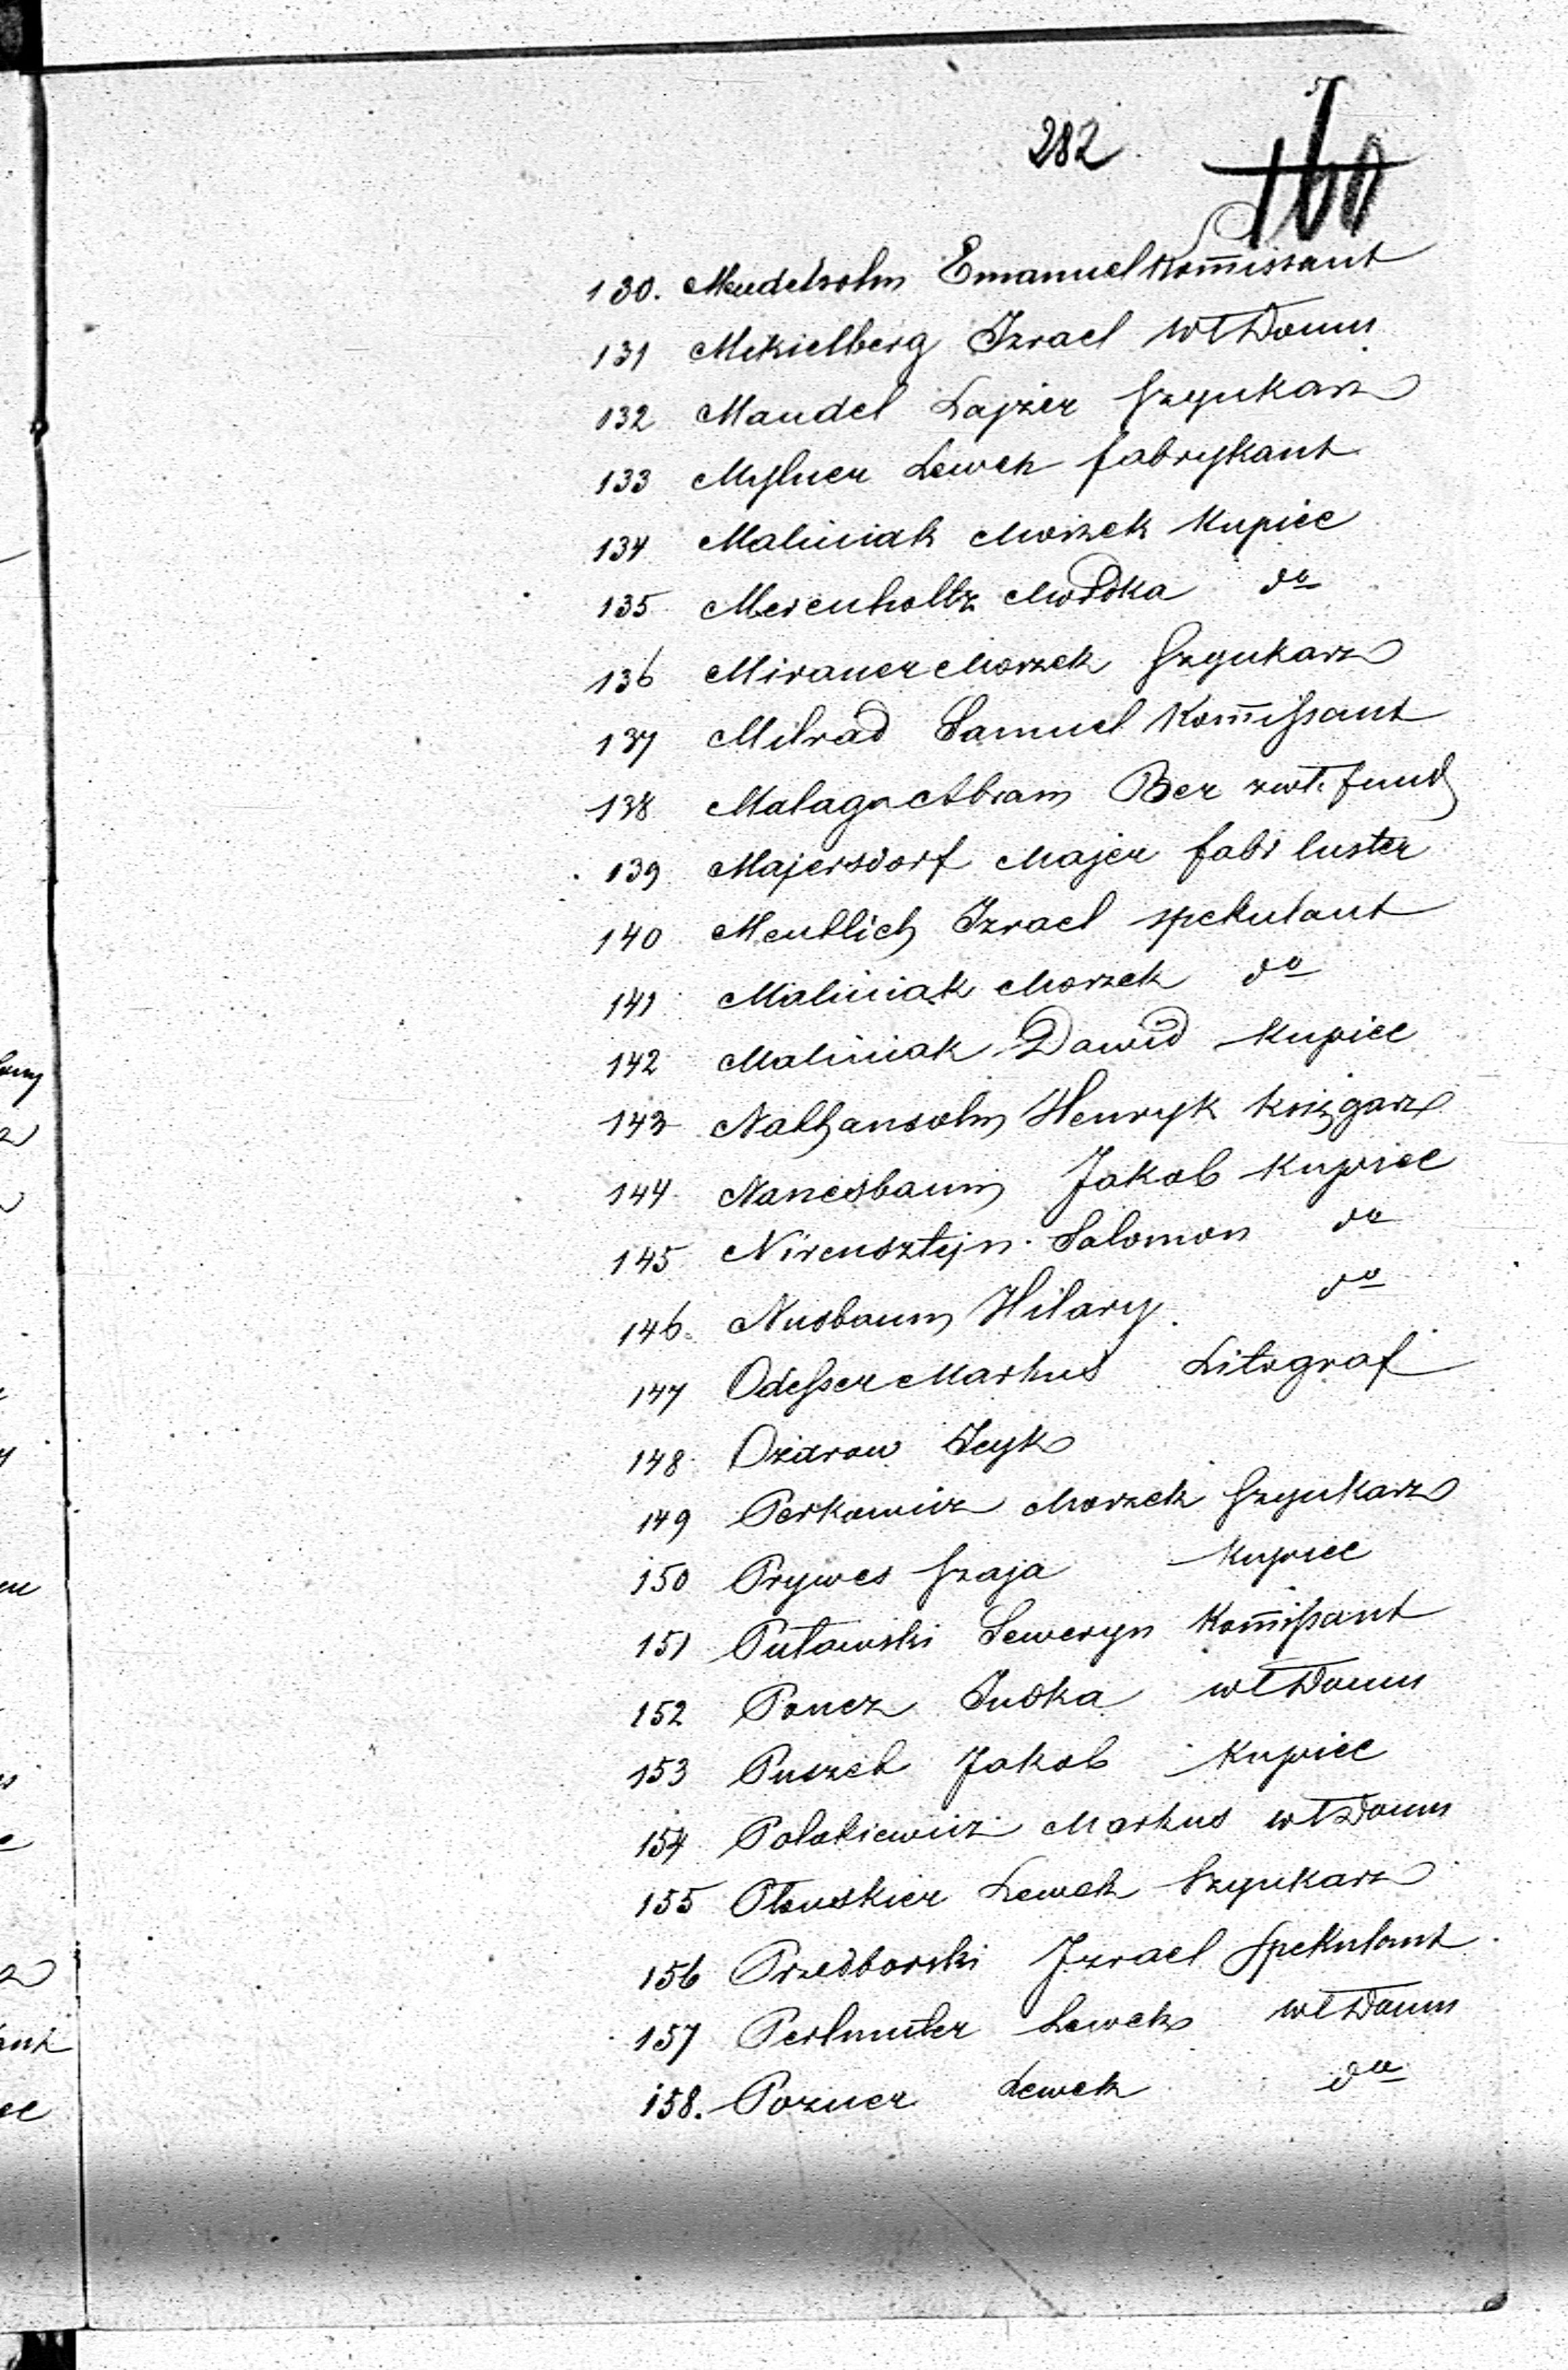 282
160
130. Mendelsohn Emanuel Kom̄issant
131 Mekielberg Izrael wł Domu
132 Mandel Lajzer Szynkarz
133 Mylner Lewek fabrykant
134 Maliniak Moszek Kupiec
135 Merenholtz Mordka do
136 Miraner Morzek Szynkarz
137 Milrad Samuel Kom̄issant
138 Malaga Abram Ber rwł. fund
139 Majersdorf Majer fabr luster
140 Mentlich Izrael spekulant
141 Maliniak Morzek do
142 Maliniak Dawid Kupiec
143 Nathansohn Henryk księgarz
144 Nanesbaum Jakob Kupiec
145 Nirensztejn Salomon do
146. Nusbaum Hilary do
147 Odesser Markus Litograf
148 Ozdrow Icyk
149 Perkowicz Morzek Szynkarz
150 Prywes Szaja Kupiec
151 Puławski Seweryn Kom̄issant
152 Poncz Judka wł Domu
153 Puszet Jakob Kupiec
154 Polakiewicz Markus wł Domu
155 Płouskier Lewek Szynkarz
156 Przedborski Izrael Spekulant
157 Perlmuter Lewek wł Domu
158. Pozner Lewek do